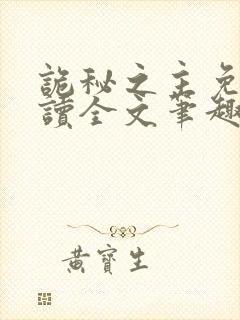 詭秘之主免
讀全文筆趣
黃寶生